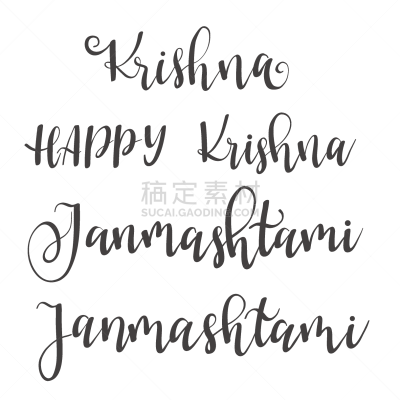 Krishna
HAPPY Krishna
稿定素材
SUCAI.GAODING.COM
Janmashtami
Janmashtami